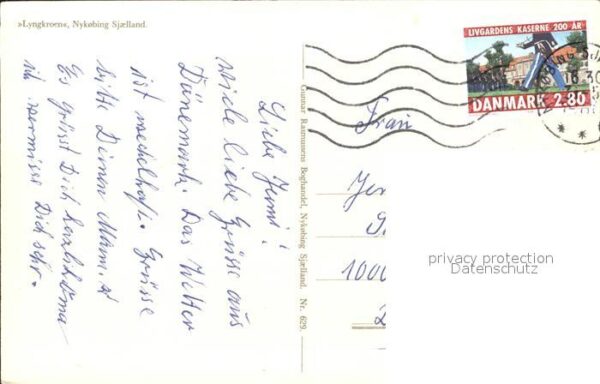 »Lyngkroen«, Nykøbing Sjælland.
Liebe Jenni!
viele liebe Grüsse aus
Dänemark. Das Wetter
ist wechselhaft. Grüsse
bitte Deinen Mann.
Es grüsst Dich herzlichst
ich vermisse Dich sehr.
Gunnar Rasmussens Boghandel, Nykøbing Sjælland. Nr. 629.
LIVGARDENS KASERNE 200 ÅR
DANMARK 2.80
Frau
Jen
1000
privacy protection
Datenschutz